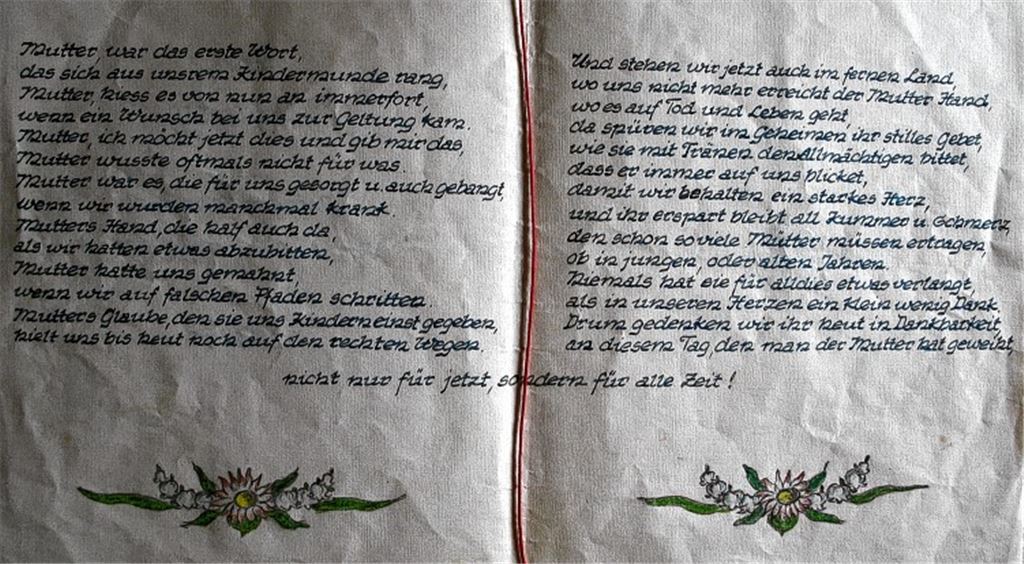 Mutter, war das erste Wort,
das sich aus unsrem Kindermunde rang,
Mutter, hiess es von nun an immerfort,
wenn ein Wunsch bei uns zur Geltung kam.
Mutter, ich möcht jetzt dies und gib mir das,
Mutter wusste oftmals nicht für was.
Mutter war es, die für uns gesorgt u. auch gebangt,
wenn wir wurden manchmal krank.
Mutters Hand, die half auch da,
als wir hatten etwas abzubitten,
Mutter hatte uns gemahnt,
wenn wir auf falschen Pfaden schritten.
Mutters Glaube, den sie uns Kindern einst gegeben,
hielt uns bis heut noch auf den rechten Wegen.
Und stehen wir jetzt auch im fernen Land,
wo uns nicht mehr erreicht der Mutter Hand,
wo es auf Tod und Leben geht,
da spüren wir im Geheimen ihr stilles Gebet,
wie sie mit Tränen den Allmächtigen bittet,
dass er immer auf uns blicket,
damit wir behalten ein starkes Herz,
und ihr erspart bleibt all Kummer u. Schmerz,
den schon soviele Mütter müssen ertragen,
ob in jungen, oder alten Jahren.
Niemals hat sie für alldies etwas verlangt,
als in unseren Herzen ein klein wenig Dank.
Drum gedenken wir ihr heut in Dankbarkeit,
an diesem Tag, den man der Mutter hat geweiht,
nicht nur für jetzt, sondern für alle Zeit!